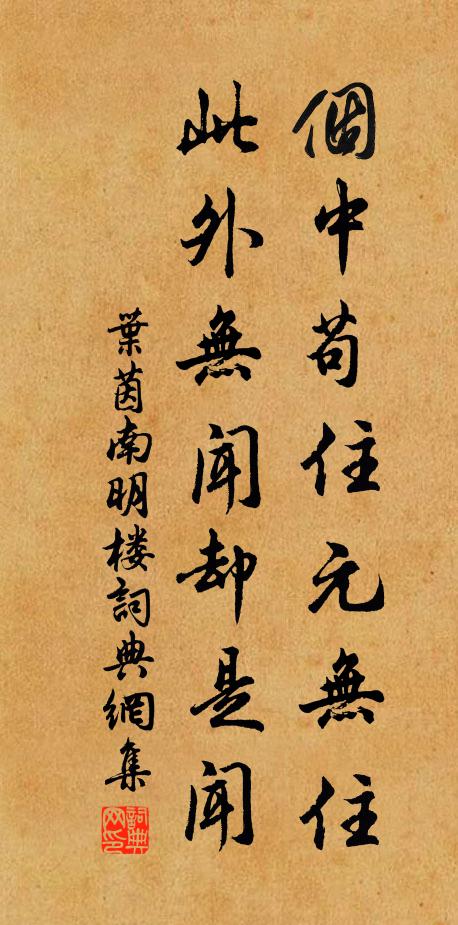 個中苟住元無住
此外無聞却是聞
葉茵南明楼詞典網集
詞典网印